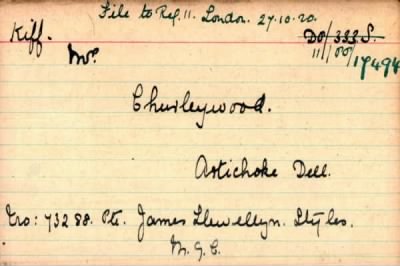 File to Ref. 11. London. 27.10.20.
Kiff. DO/333 S.
Mrs. 11/100/17494
Churleywood.
Artichoke Dell.
Ero: 73288. Pte. James Llewellyn. Styles.
M.G.C.